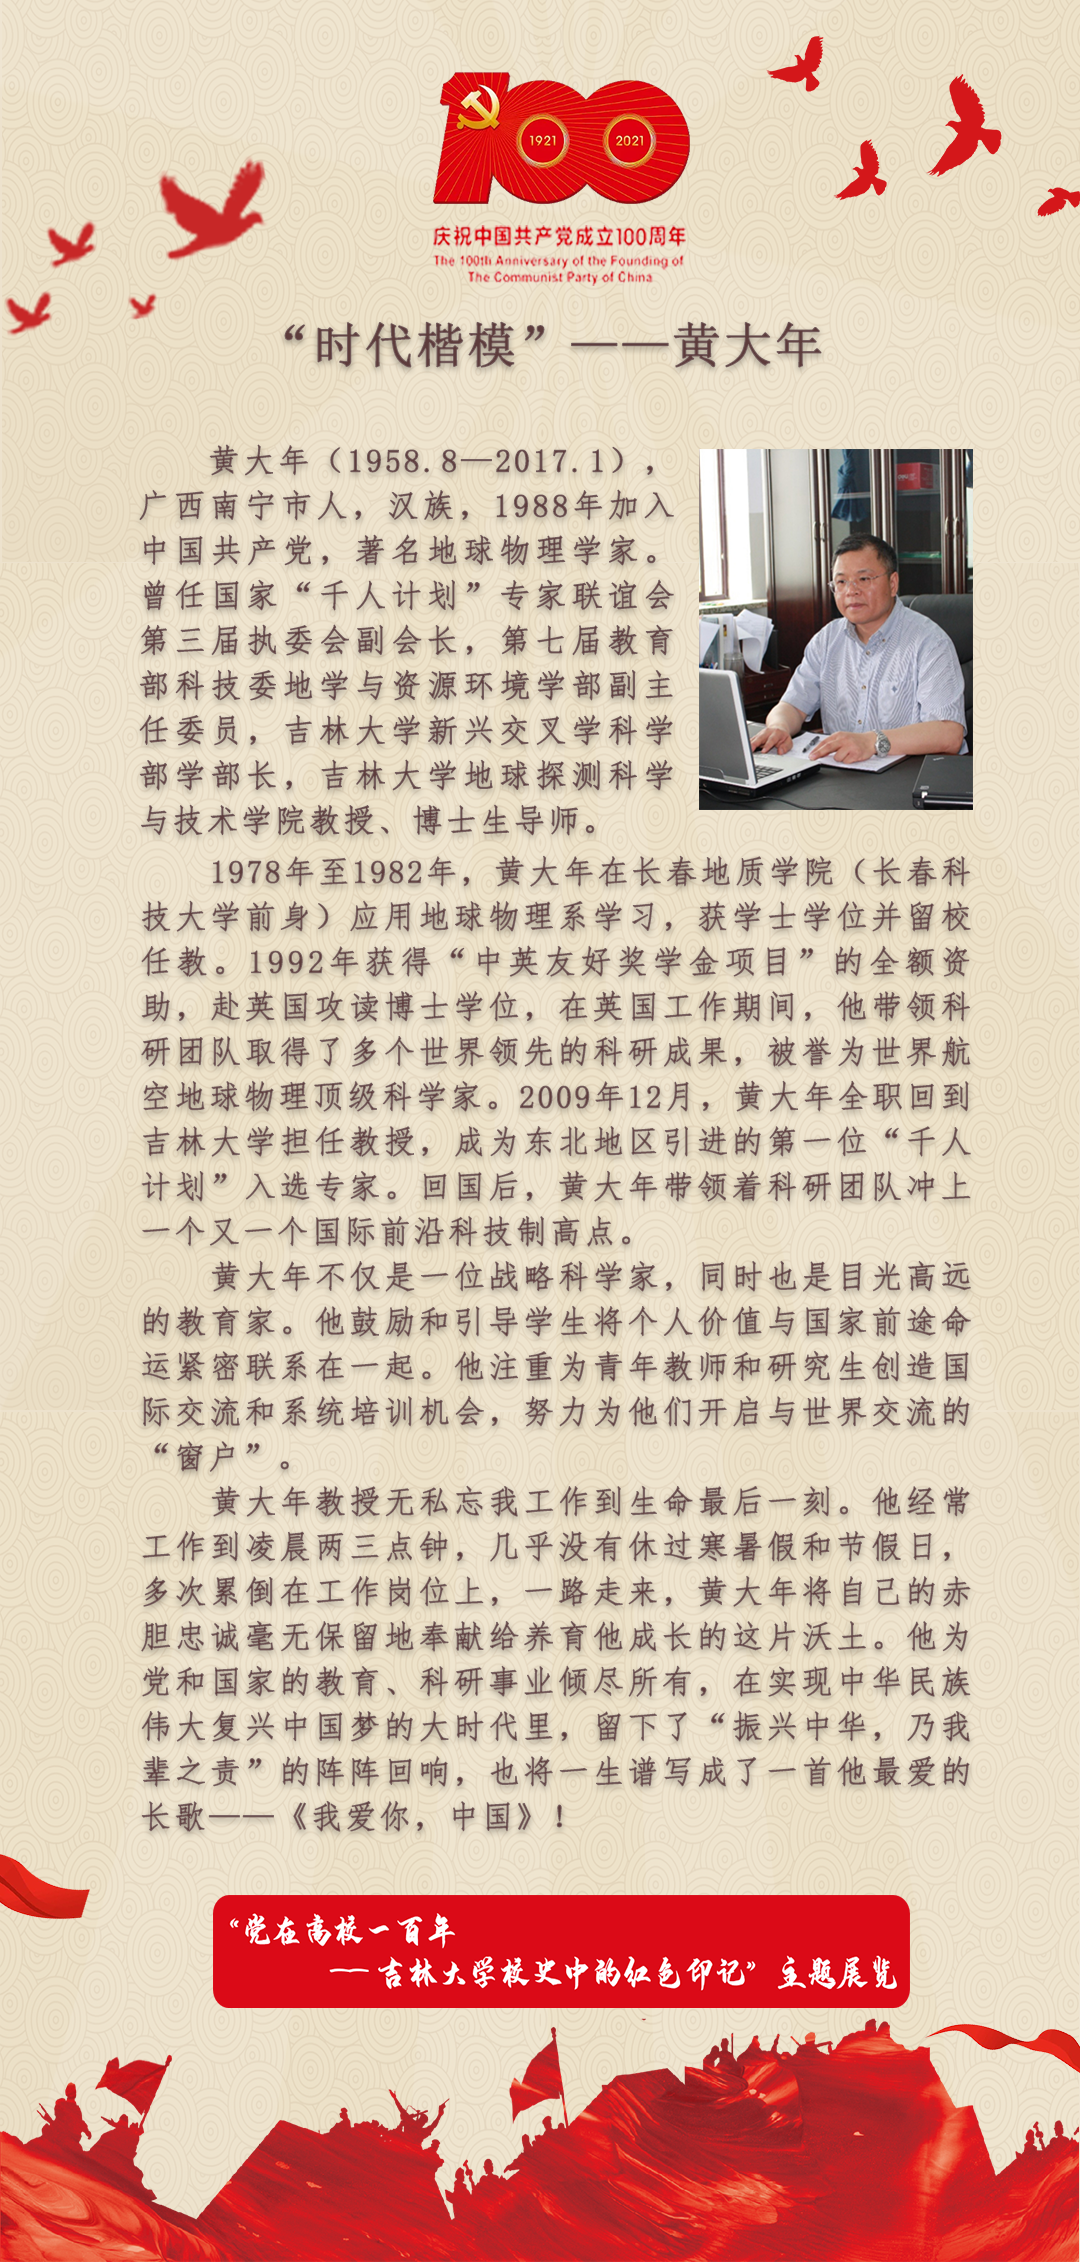 1921
2021
庆祝中国共产党成立100周年
The 100th Anniversary of the Founding of
The Communist Party of China
“时代楷模”——黄大年
黄大年（1958.8—2017.1），
广西南宁市人，汉族，1988年加入
中国共产党，著名地球物理学家。
曾任国家“千人计划”专家联谊会
第三届执委会副会长，第七届教育
部科技委地学与资源环境学部副主
任委员，吉林大学新兴交叉学科学
部学部长，吉林大学地球探测科学
与技术学院教授、博士生导师。
1978年至1982年，黄大年在长春地质学院（长春科
技大学前身）应用地球物理系学习，获学士学位并留校
任教。1992年获得“中英友好奖学金项目”的全额资
助，赴英国攻读博士学位，在英国工作期间，他带领科
研团队取得了多个世界领先的科研成果，被誉为世界航
空地球物理顶级科学家。2009年12月，黄大年全职回到
吉林大学担任教授，成为东北地区引进的第一位“千人
计划”入选专家。回国后，黄大年带领着科研团队冲上
一个又一个国际前沿科技制高点。
黄大年不仅是一位战略科学家，同时也是目光高远
的教育家。他鼓励和引导学生将个人价值与国家前途命
运紧密联系在一起。他注重为青年教师和研究生创造国
际交流和系统培训机会，努力为他们开启与世界交流的
“窗户”。
黄大年教授无私忘我工作到生命最后一刻。他经常
工作到凌晨两三点钟，几乎没有休过寒暑假和节假日，
多次累倒在工作岗位上，一路走来，黄大年将自己的赤
胆忠诚毫无保留地奉献给养育他成长的这片沃土。他为
党和国家的教育、科研事业倾尽所有，在实现中华民族
伟大复兴中国梦的大时代里，留下了“振兴中华，乃我
辈之责”的阵阵回响，也将一生谱写成了一首他最爱的
长歌——《我爱你，中国》！
“党在高校一百年
——吉林大学校史中的红色印记”主题展览